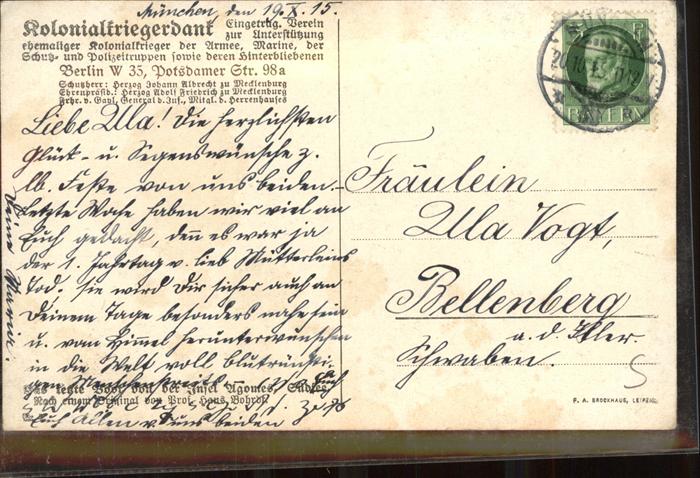 München, den 19.X.15.
Kolonialkriegerdank Eingetrag. Verein
zur Unterstützung
ehemaliger Kolonialkrieger der Armee, Marine, der
Schutz- und Polizeitruppen sowie deren Hinterbliebenen
Berlin W 35, Potsdamer Str. 98a
Schutzherr: Herzog Johann Albrecht zu Mecklenburg
Ehrenpräsid.: Herzog Adolf Friedrich zu Mecklenburg
Frhr. v. Gayl, General d. Inf., Mitgl. d. Herrenhauses
Liebe Ula! Die herzlichsten
Glück- u. Segenswünsche z.
lb. Feste von uns beiden.
Letzte Woche haben wir viel an
Euch gedacht, denn es war ja
der 1. Jahrtag v. lieb Mutterleins
Tod. Sie wird Dir sicher auch an
Deinem Tage besonders nahe sein
u. vom Himmel herunterwünschen
in die Welt voll blutrünsti-
gen
Das letzte Boot von der Insel
Nach einem Original von Prof. Hans Bohrdt.
Euch Allen v. uns beiden
Deine
MÜNCHEN
20.10.15.
BAYERN
5 PF
Fräulein
Ula Vogt,
Bellenberg
a. d. Iller.
Schwaben.
5
F. A. BROCKHAUS, LEIPZIG.